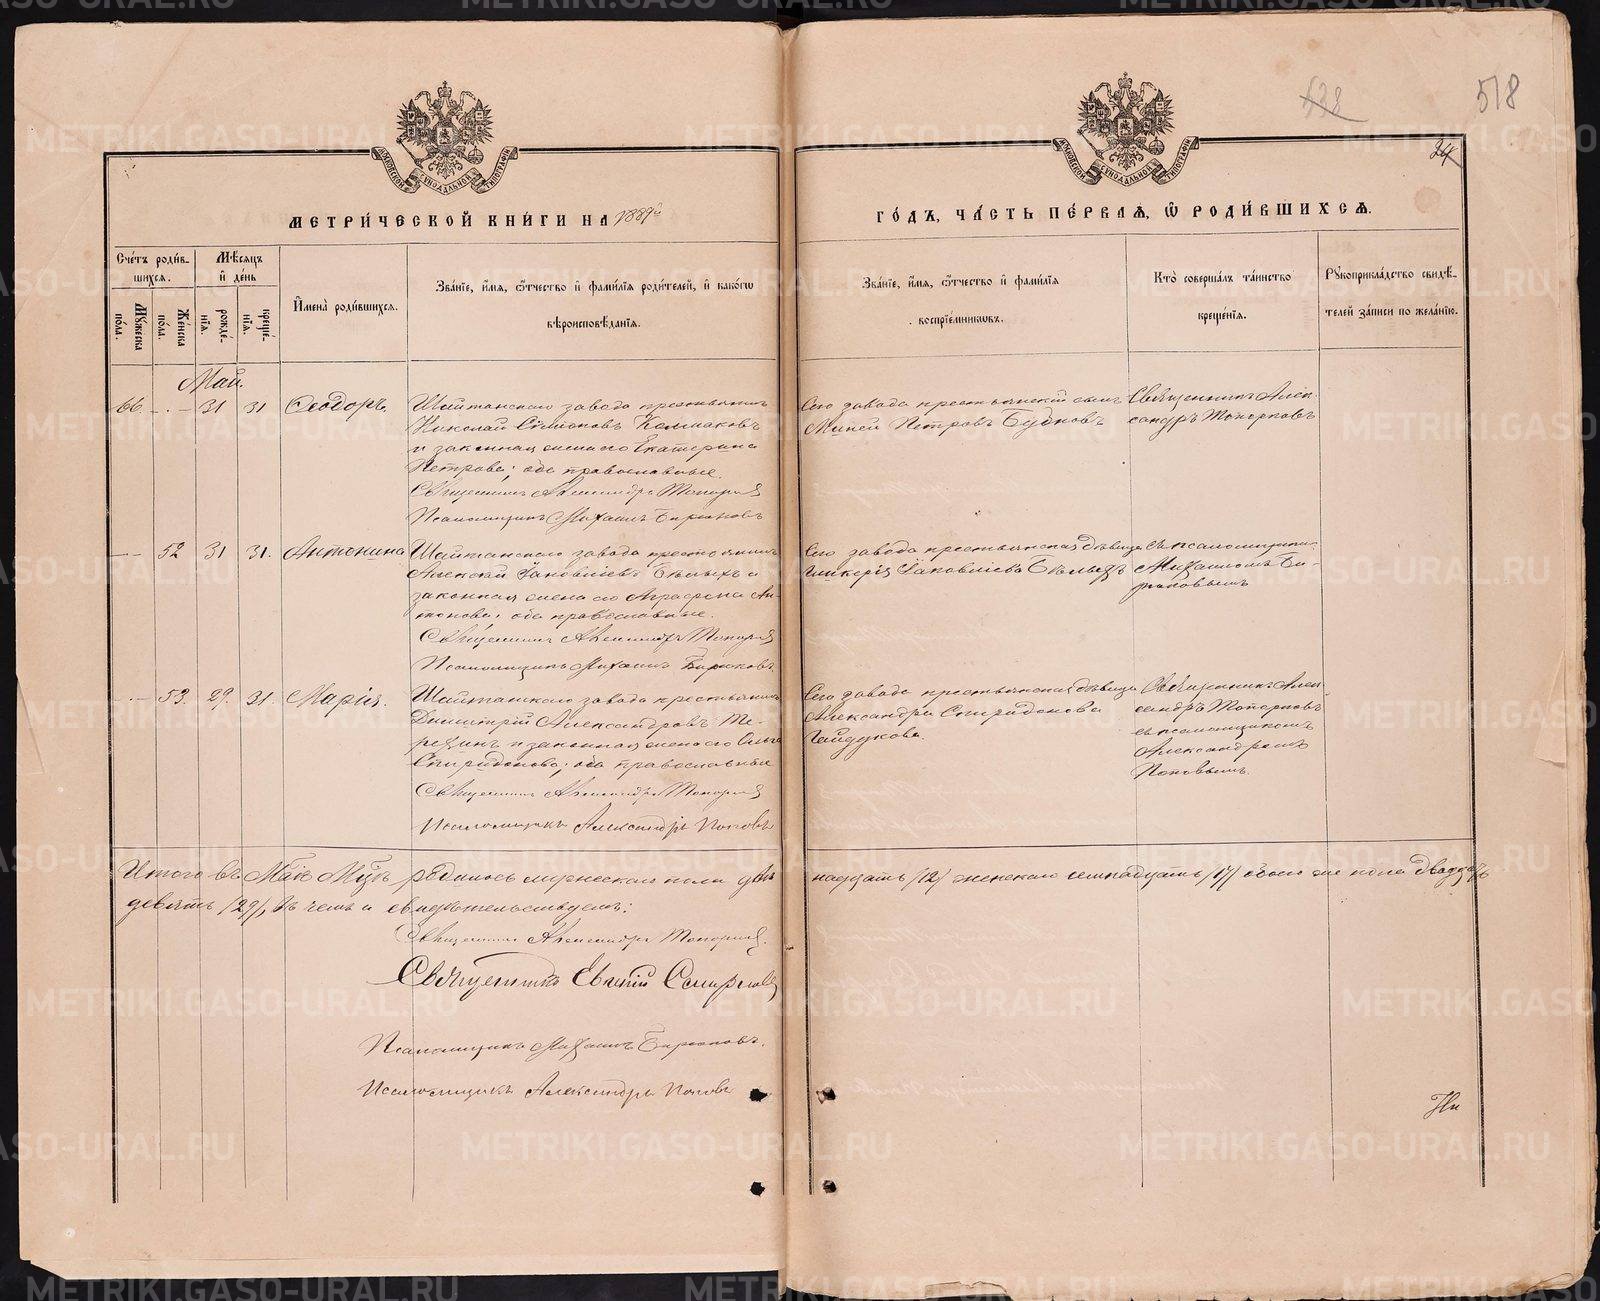 518
МЕТРИ́ЧЕСКОЙ КНИ́ГИ НА 1889й
ГО́ДЪ, ЧА́СТЬ ПЕ́РВАѦ, Ѡ҆ РОДИ́ВШИХСѦ.
Сче́тъ роди́в-
шихсѧ.
Мꙋжеска по́ла.
Же́нска по́ла.
Мѣ́сѧцъ
и҆ де́нь
рожде́-
нїѧ.
креще́-
нїѧ.
И҆мена̀ роди́вшихсѧ.
Зва́нїе, и҆́мѧ, ѻ҆́тчество и҆ фами́лїѧ роди́телей, и҆ како́гѡ
вѣроисповѣ́данїѧ.
Зва́нїе, и҆́мѧ, ѻ҆́тчество и҆ фами́лїѧ
воспрїе́мникѡвъ.
Кто̀ соверша́лъ та́инство
креще́нїѧ.
Рꙋкоприкла́дство свидѣ́-
телей за́писи по жела́нїю.
Май.
66. 31 31 Ѳеодоръ.
Шайтанскаго завода крестьянинъ
Николай Симоновъ Колмаковъ
и законная жена его Екатерина
Петрова; оба православные.
Священникъ Александръ Топорковъ
Псаломщикъ Михаилъ Бирюковъ
Сего завода крестьянский сынъ
Петровъ
Священникъ Алек-
сандръ Топорковъ
52 31 31. Антонина
Шайтанскаго завода крестьянинъ
Алексѣй Іаковлевъ Бѣлыхъ и
законная жена его Аграфена Ан-
тонова; оба православные.
Священникъ Александръ Топорковъ
Псаломщикъ Михаилъ Бирюковъ
Сего завода крестьянская дѣвица
Гликерія Іаковлева Бѣлыхъ
съ псаломщикомъ
Михаиломъ Би-
рюковымъ
53. 29. 31. Марія.
Шайтанскаго завода крестьянинъ
Димитрій Александровъ
и законная жена его Ольга
Спиридонова; оба православные
Священникъ Александръ Топорковъ
Псаломщикъ Александръ Поповъ
Сего завода крестьянская дѣвица
Александра Спиридонова
Гайдукова.
Священникъ Алек-
сандръ Топорковъ
съ псаломщикомъ
Александромъ
Поповымъ.
Итого въ Маѣ Мцѣ родилось мужескаго пола двѣ-
надцать /12/ женскаго семнадцать /17/ обоего же пола двадцать
девять /29/, въ чемъ и свидѣтельствуемъ:
Священникъ Александръ Топорковъ.
Священникъ Евгеній Смирновъ
Псаломщикъ Михаилъ Бирюковъ.
Псаломщикъ Александръ Поповъ